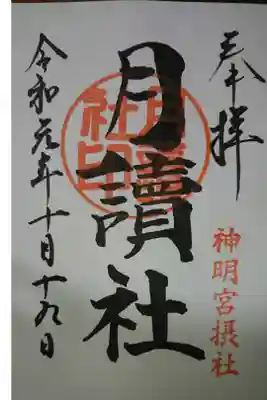 奉拝
神明宮摂社
月讀社
令和元年十月十九日